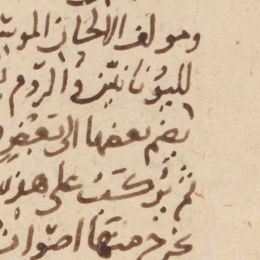 ومولف الالحان المو
لليونانيين والروم
بضم بعضها الى بعض
ثم يركب على هذه
يخرج منها اصوات